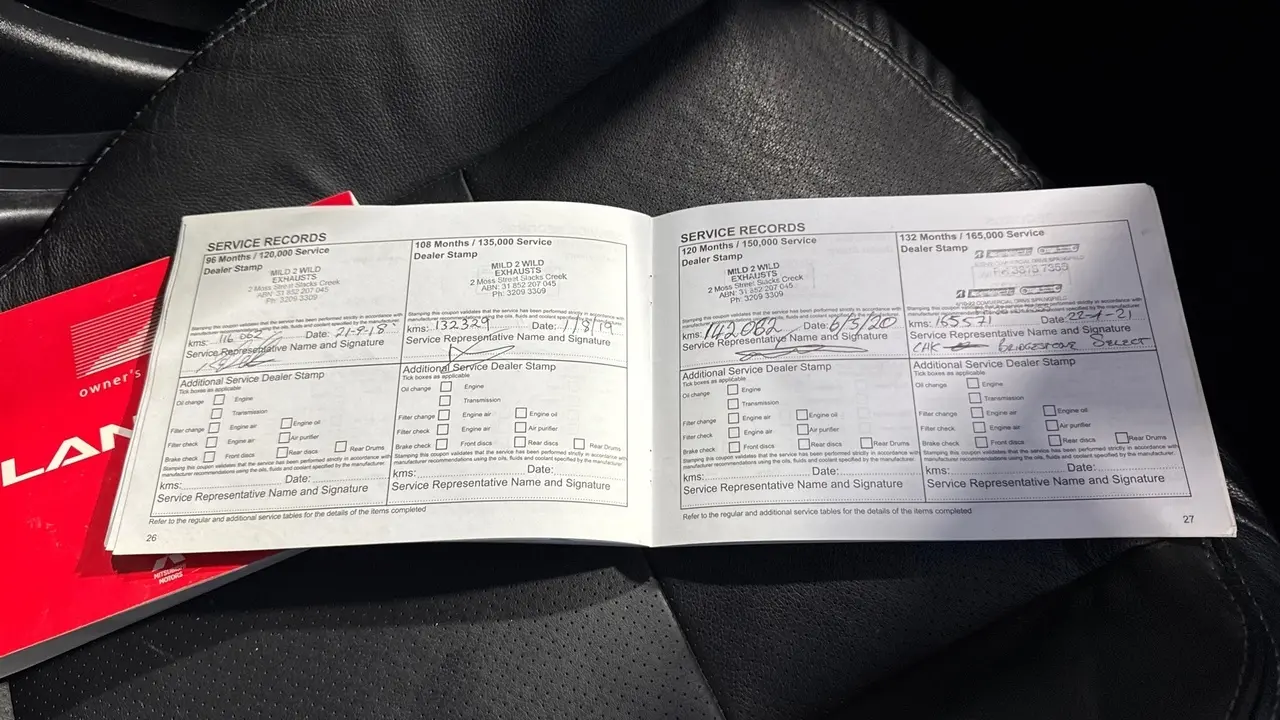 owner's
LAN
MITSUBI
MOTORS
SERVICE RECORDS
96 Months / 120,000 Service
Dealer Stamp
MILD 2 WILD
EXHAUSTS
2 Moss Street Slacks Creek
ABN: 31 852 207 045
Ph: 3209 3309
Stamping this coupon validates that the service has been performed strictly in accordance with
manufacturer recommendations using the oils, fluids and coolant specified by the manufacturer.
kms: 116 062 Date: 21-9-18
Service Representative Name and Signature
Additional Service Dealer Stamp
Tick boxes as applicable
Oil change Engine
Transmission
Filter change Engine air Engine oil
Filter check Engine air Air purifier
Brake check Front discs Rear discs Rear Drums
Stamping this coupon validates that the service has been performed strictly in accordance with
manufacturer recommendations using the oils, fluids and coolant specified by the manufacturer.
kms: Date:
Service Representative Name and Signature
108 Months / 135,000 Service
Dealer Stamp
MILD 2 WILD
EXHAUSTS
2 Moss Street Slacks Creek
ABN: 31 852 207 045
Ph: 3209 3309
Stamping this coupon validates that the service has been performed strictly in accordance with
manufacturer recommendations using the oils, fluids and coolant specified by the manufacturer.
kms: 132329 Date: 1/8/19
Service Representative Name and Signature
Additional Service Dealer Stamp
Tick boxes as applicable
Oil change Engine
Transmission
Filter change Engine air Engine oil
Filter check Engine air Air purifier
Brake check Front discs Rear discs Rear Drums
Stamping this coupon validates that the service has been performed strictly in accordance with
manufacturer recommendations using the oils, fluids and coolant specified by the manufacturer.
kms: Date:
Service Representative Name and Signature
Refer to the regular and additional service tables for the details of the items completed
26
SERVICE RECORDS
120 Months / 150,000 Service
Dealer Stamp
MILD 2 WILD
EXHAUSTS
2 Moss Street Slacks Creek
ABN: 31 852 207 045
Ph: 3209 3309
Stamping this coupon validates that the service has been performed strictly in accordance with
manufacturer recommendations using the oils, fluids and coolant specified by the manufacturer.
kms: 142062 Date: 6/3/20
Service Representative Name and Signature
Additional Service Dealer Stamp
Tick boxes as applicable
Oil change Engine
Transmission
Filter change Engine air Engine oil
Filter check Engine air Air purifier
Brake check Front discs Rear discs Rear Drums
Stamping this coupon validates that the service has been performed strictly in accordance with
manufacturer recommendations using the oils, fluids and coolant specified by the manufacturer.
kms: Date:
Service Representative Name and Signature
132 Months / 165,000 Service
Dealer Stamp
COMMERCIAL DRIVE SPRINGFIELD
Stamping this coupon validates that the service has been performed strictly in accordance with
manufacturer recommendations using the oils, fluids and coolant specified by the manufacturer.
kms: 165571 Date:
Service Representative Name and Signature
BRIDGESTONE SELECT
Additional Service Dealer Stamp
Tick boxes as applicable
Oil change Engine
Transmission
Filter change Engine air Engine oil
Filter check Engine air Air purifier
Brake check Front discs Rear discs Rear Drums
Stamping this coupon validates that the service has been performed strictly in accordance with
manufacturer recommendations using the oils, fluids and coolant specified by the manufacturer.
kms: Date:
Service Representative Name and Signature
Refer to the regular and additional service tables for the details of the items completed
27